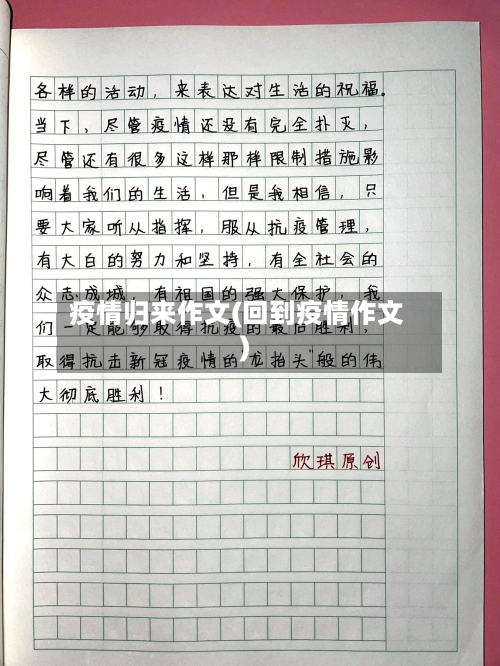 各样的活动，来表达对生活的祝福。
当下，尽管疫情还没有完全扑灭，
尽管还有很多这样那样限制措施影
响着我们的生活，但是我相信，只
要大家听从指挥，服从抗疫管理，
有大白的努力和坚持，有全社会的
众志成城，有祖国的强大保护，我
疫情归来作文(回到疫情作文
)
们一定能够取得抗疫的最后胜利，
取得抗击新冠疫情的“龙抬头”般的伟
大彻底胜利！
欣琪原创